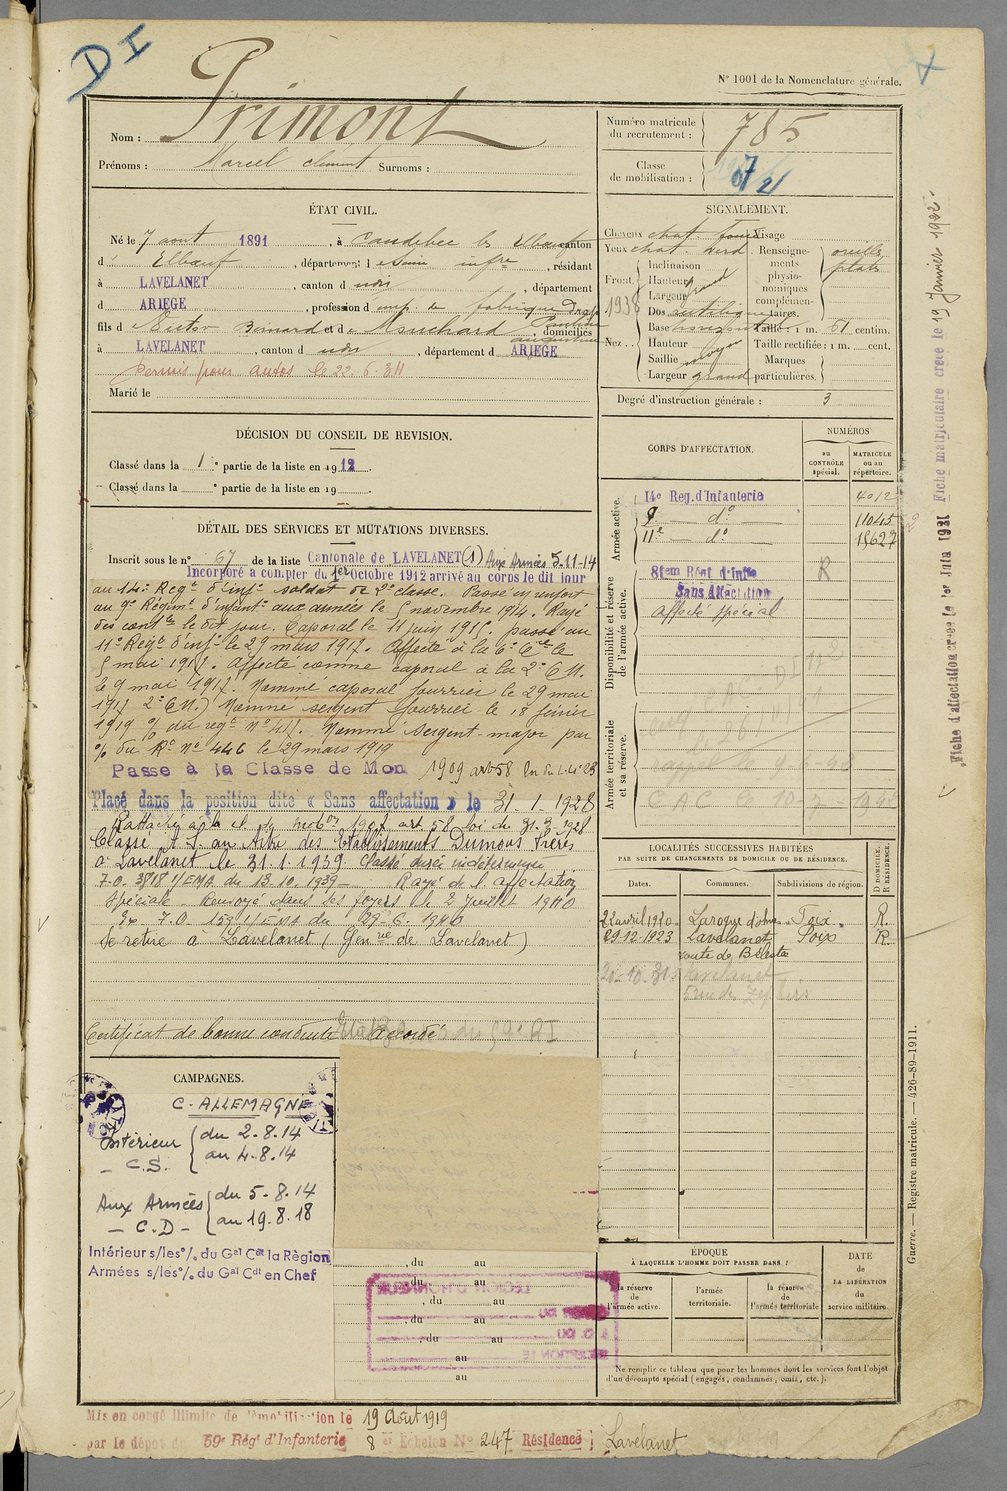 DI
N° 1001 de la Nomenclature générale.
Nom : Primont
Prénoms : Marcel Clément Surnoms :
Numéro matricule du recrutement : 785
Classe de mobilisation :
ÉTAT CIVIL.
Né le 7 aout 1891, à Caudebec les Elbeuf canton
d' Elbeuf, département d Seine infre, résidant
à LAVELANET, canton d udit, département
d ARIEGE, profession d emp. de fabrique Draps
fils d Victor Bernard et de Mouchard Emilie Augustine, domiciliés
à LAVELANET, canton d udit, département d ARIEGE
permis pour autos le 22.6.34
Marié le
SIGNALEMENT.
Cheveux chat. foncé Visage
Yeux chat. verd. Renseignements physionomiques complémentaires. oreilles plates
Front. Inclinaison
Hauteur
Largeur grand
1938
Nez. Dos rectiligne
Base horizont Taille : 1 m. 61 centim.
Hauteur Taille rectifiée : 1 m. cent.
Saillie moyen Marques
Largeur grand particulières.
Degré d'instruction générale : 3
DÉCISION DU CONSEIL DE REVISION.
Classé dans la 1e partie de la liste en 1912.
Classé dans la ° partie de la liste en 19
CORPS D'AFFECTATION.
NUMÉROS
au CONTRÔLE spécial.
MATRICULE ou au répertoire.
Armée active.
14e Reg. d'Infanterie 4012
9e d° 11045
11e d° 15627
Disponibilité et réserve de l'armée active.
81em Régt d'Infie R
Sans Affectation
affecté spécial
Armée territoriale et sa réserve.
DÉTAIL DES SERVICES ET MUTATIONS DIVERSES.
Inscrit sous le n° 67 de la liste Cantonale de LAVELANET (1) Aux Armées 5-11-14
Incorporé à compter du 1er Octobre 1912 arrivé au corps le dit jour
au 14e Regt d'infie soldat de 2e classe. Passé en renfort
au 9e Régimt d'infantie aux armées le 5 novembre 1914. Rayé
des contles le dit jour. Caporal le 11 juin 1915. passé au
11e Regt d'infie le 29 mars 1917. affecté à la 6e Cie le
5 mai 1917. affecté comme caporal à la 2e C.M.
le 9 mai 1917. Nommé caporal fourrier le 29 mai
1917 2e C.M.) Nommé sergent fourrier le 18 février
1919 % du regt N° 417. Nommé Sergent-major par
% du Rt N° 446 le 29 mars 1919
Passé à la Classe de Mon 1909 art 58
Placé dans la position dite « Sans affectation » le 31-1-1928
Rattaché à la cl. de mobon 1907 art 58 loi du 31.3.1928
Classé A.S. au titre des Etablissements Dumons Frères
à Lavelanet le 31.1.1939 Classé durée indéterminée
7.0. 3818 1/EMA du 13.10.1939 - Rayé de l'affectation
spéciale. Renvoyé dans ses foyers le 2 juillet 1940
Ex. 7.0. 159 1/EMA du 29.6.1940
Se retire à Lavelanet (Genrie de Lavelanet)
Certificat de bonne conduite accordé
LOCALITÉS SUCCESSIVES HABITÉES
PAR SUITE DE CHANGEMENTS DE DOMICILE OU DE RÉSIDENCE.
Dates. Communes. Subdivisions de région. D DOMICILE. R RÉSIDENCE.
22 avril 1920 Laroque d'olmes Foix R.
29-12-1923 Lavelanet Foix R.
route de Bélesta
20-10-31 Lavelanet
CAMPAGNES.
C-ALLEMAGNE
Intérieur - C.S. du 2.8.14
au 4.8.14
Aux Armées - C.D - du 5.8.14
au 19.8.18
Intérieur s/les % du Gal Cdt la Région
Armées s/les % du Gal Cdt en Chef
, du au
, du au
, du au
, du au
, du au
au
au
ÉPOQUE
À LAQUELLE L'HOMME DOIT PASSER DANS :
la réserve de l'armée active.
l'armée territoriale.
la réserve de l'armée territoriale
DATE DE LA LIBÉRATION du service militaire.
Ne remplir ce tableau que pour les hommes dont les services font l'objet
d'un décompte spécial (engagés, condamnés, omis, etc.).
Mis en congé illimité de démobilisation le 19 Août 1919
par le dépôt du 59e Régt d'Infanterie 8e Echelon N° 247 Résidence Lavelanet
Fiche d'affectation créée le 1er Juin 1931 Fiche matriculaire créée le 19 Janvier 1932
Guerre. — Registre matricule. — 426-89-1911.